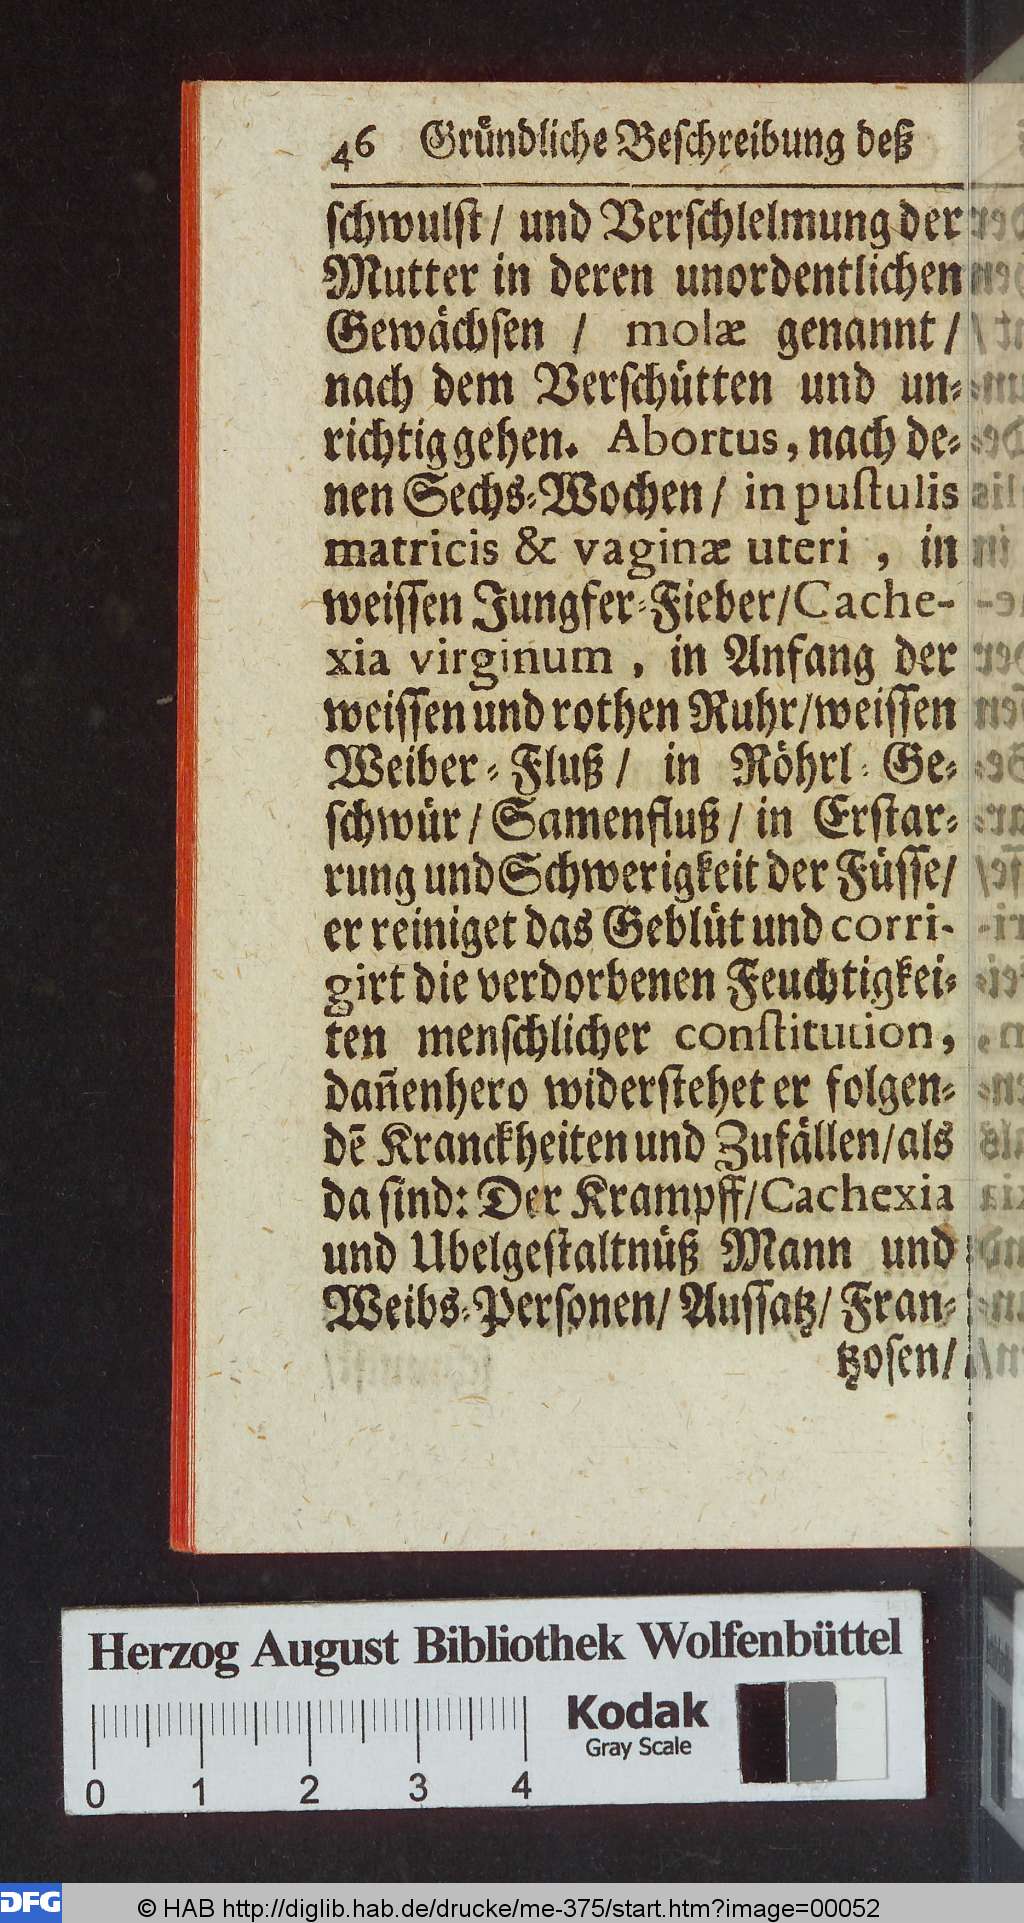 46 Gründliche Beschreibung deß
schwulst/ und Verschlelmung der
Mutter in deren unordentlichen
Gewächsen / molæ genannt/
nach dem Verschütten und un-
richtig gehen. Abortus, nach de-
nen Sechs-Wochen/ in pustulis
matricis & vaginæ uteri , in
weissen Jungfer-Fieber/Cache-
xia virginum , in Anfang der
weissen und rothen Ruhr/weissen
Weiber-Fluß/ in Röhrl-Ge-
schwür/ Samenfluß/ in Erstar-
rung und Schwerigkeit der Füsse/
er reiniget das Geblüt und corri-
girt die verdorbenen Feuchtigkei-
ten menschlicher constitution,
dañenhero widerstehet er folgen-
dē Kranckheiten und Zufällen/als
da sind: Der Krampff/Cachexia
und Ubelgestaltnüß Mann und
Weibs-Personen/ Aussatz/ Fran-
tzosen/
Herzog August Bibliothek Wolfenbüttel
Kodak
Gray Scale
0 1 2 3 4
DFG
© HAB http://diglib.hab.de/drucke/me-375/start.htm?image=00052